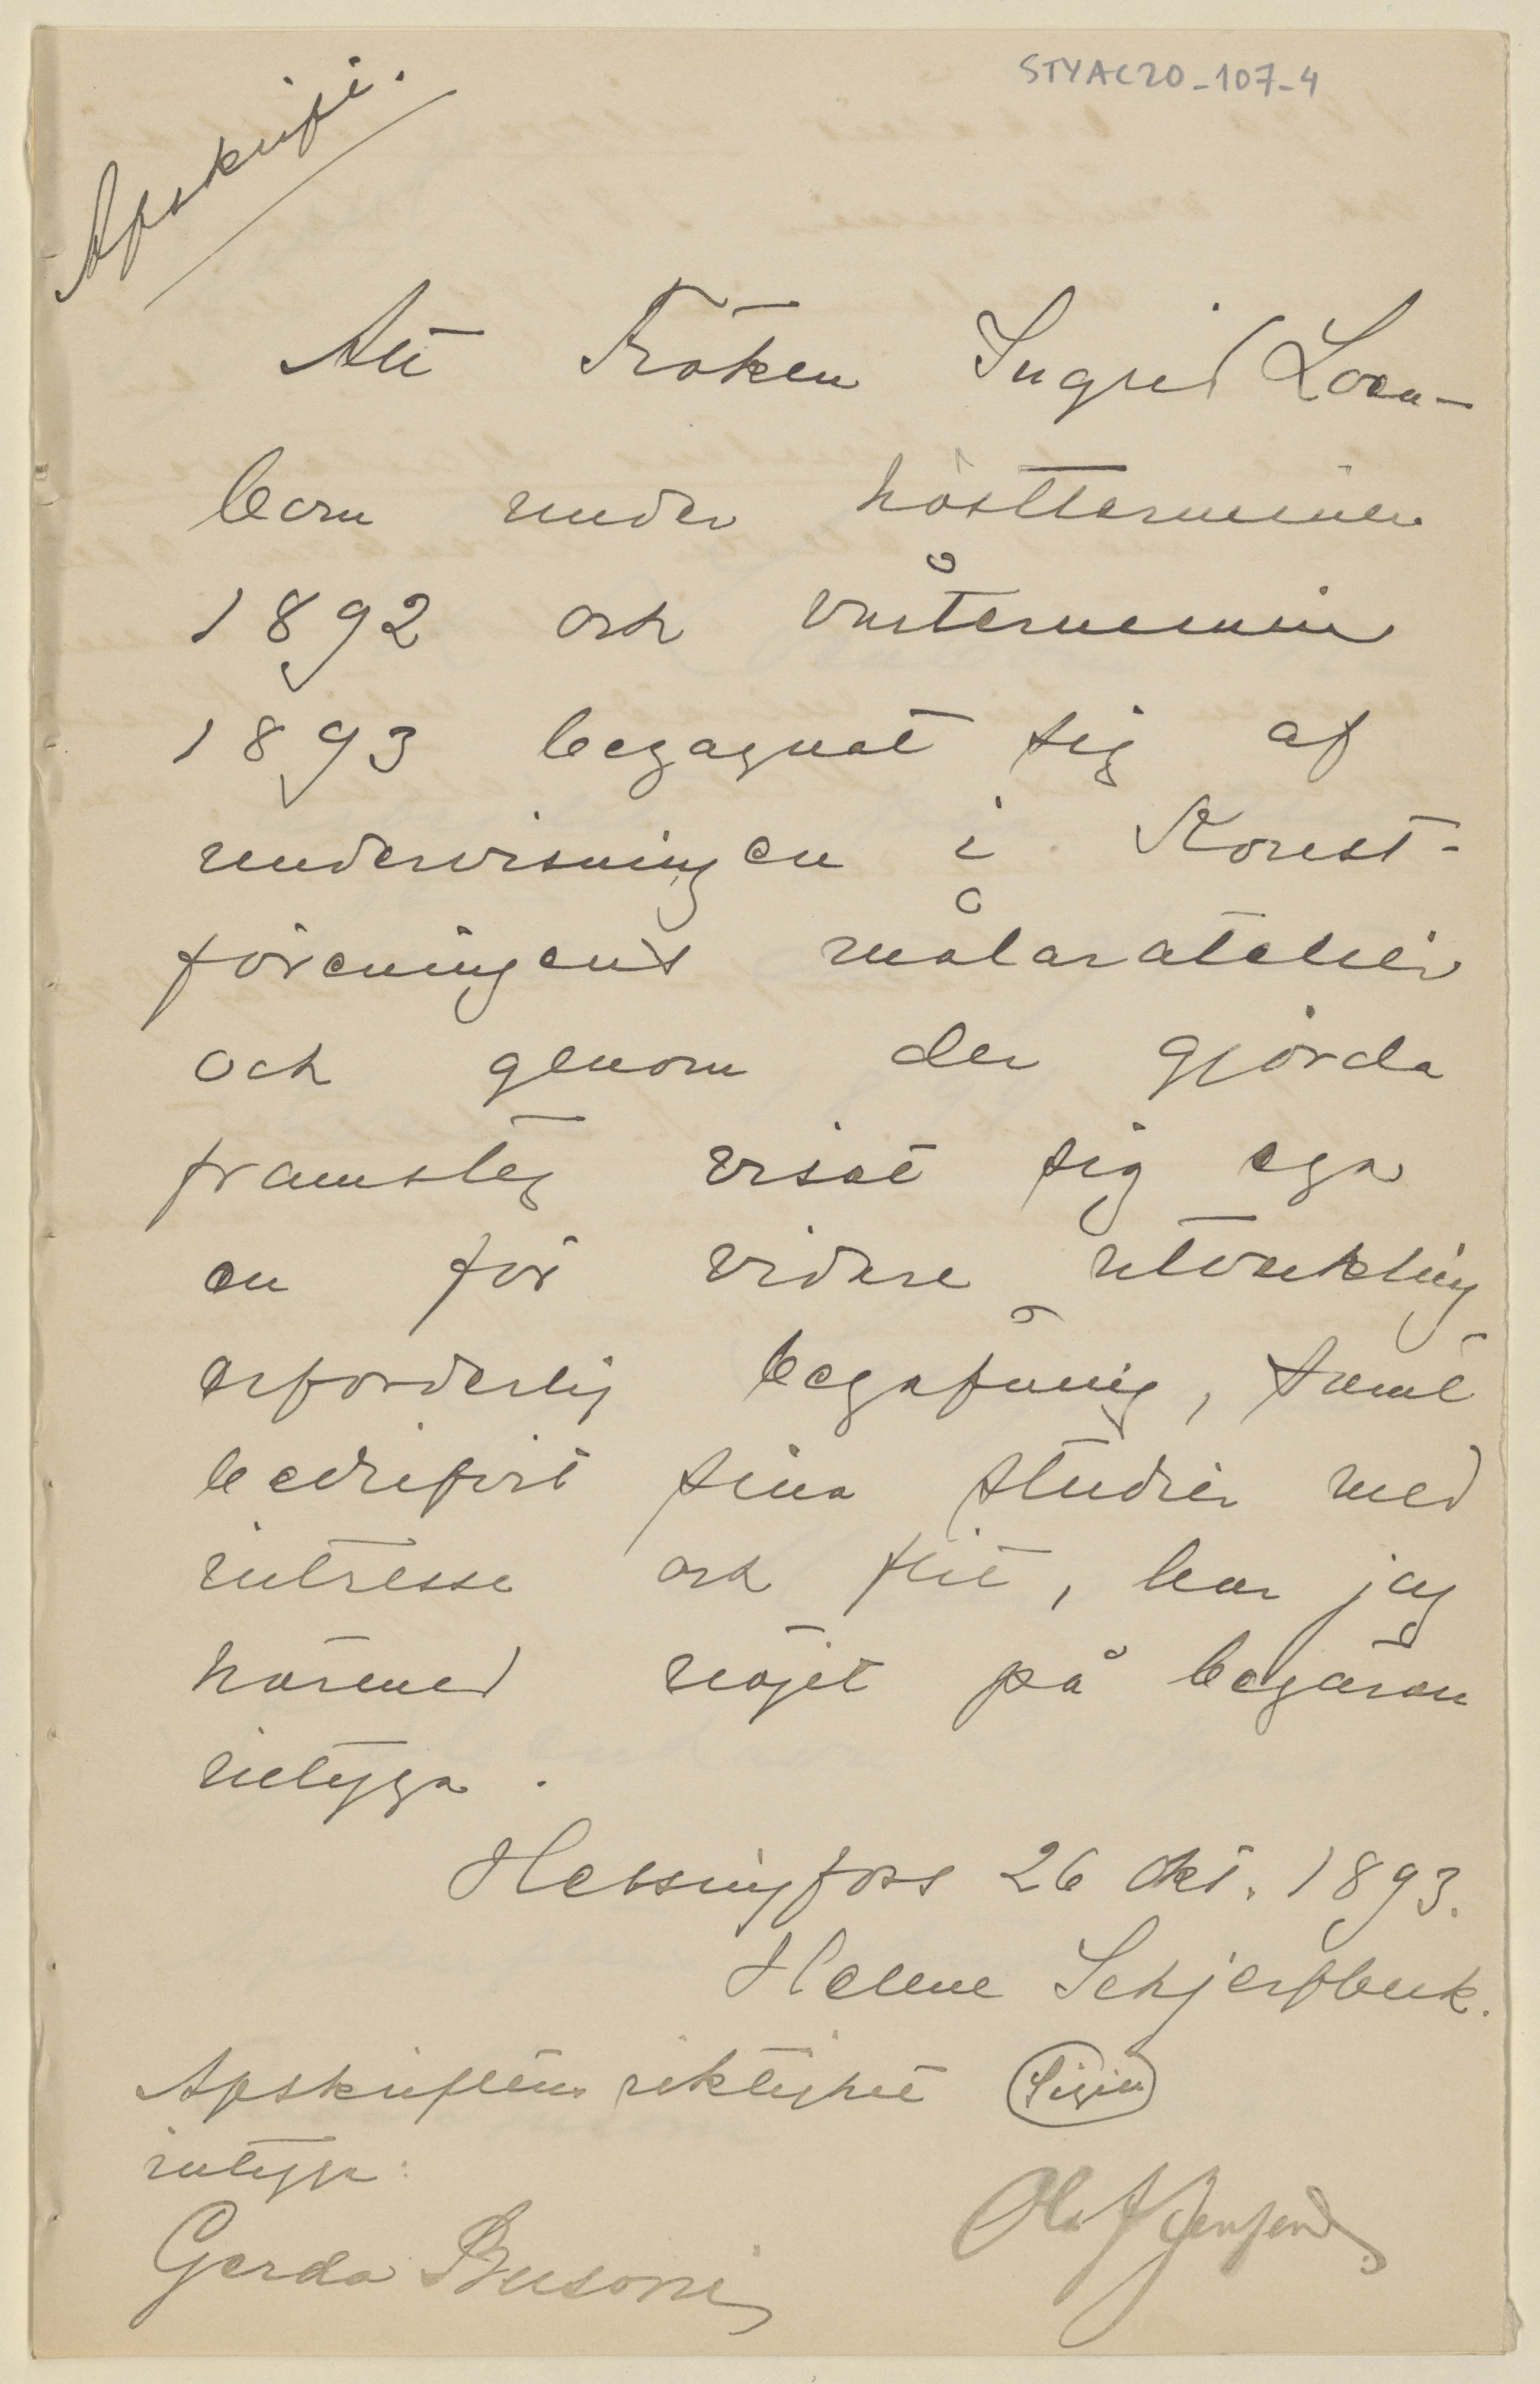 STYAC20-107-4
Afskrift.
Att Fröken Ingrid Loen-
bom under höstterminen
1892 och vårterminen
1893 begagnat sig af
undervisningen i Konst-
föreningens målaratelier
och genom der gjorda
framsteg visat sig ega
en för vidare utveckling
erforderlig begåfning, samt
bedrifvit sina studier med
intresse och flit, har jag
härmed nöjet på begäran
intyga.
Helsingfors 26 Okt. 1893.
Helene Schjerfbeck.
Afskriftens riktighet Sigill
intyga:
Gerda Busoni